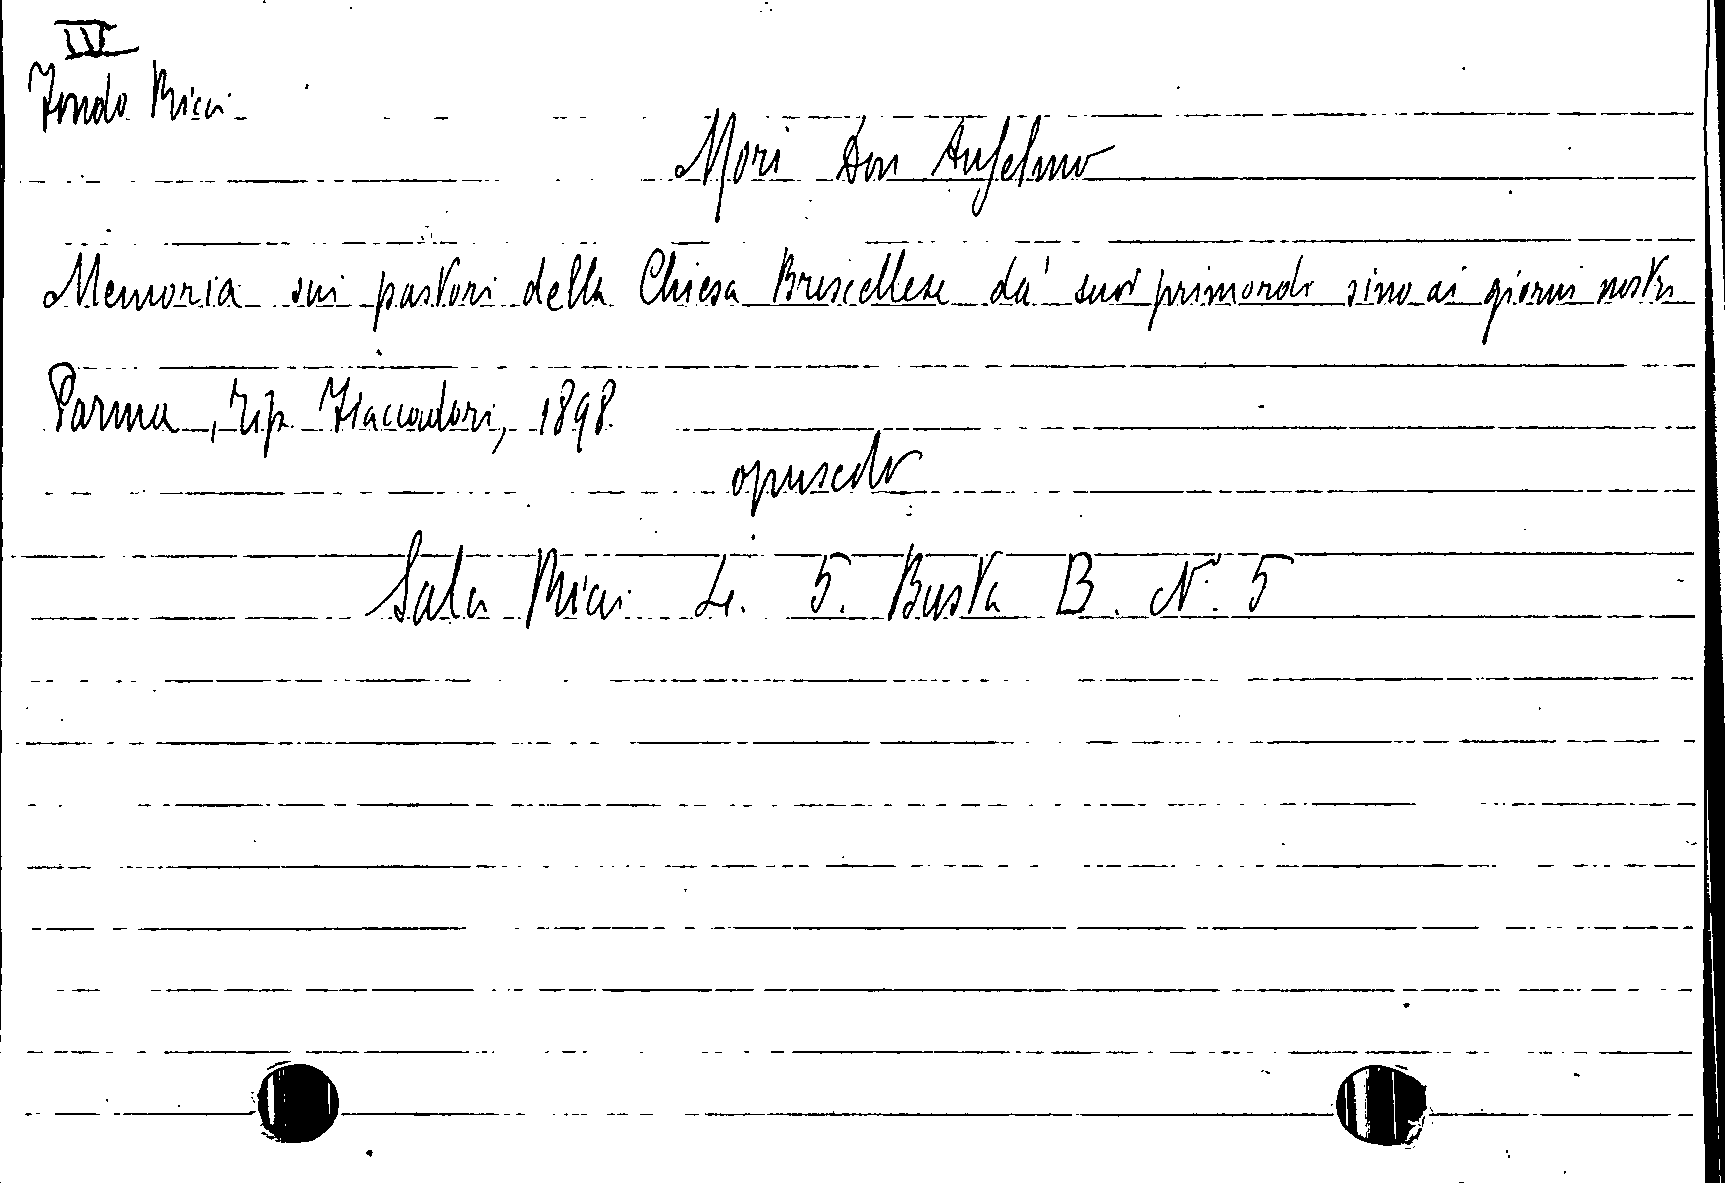 IV
Fondo Ricci
Mori Don Anselmo
Memoria sui pastori della Chiesa Brescellese da' suoi primordi sino ai giorni nostri
Parma, tip. Fiaccadori, 1898.
opuscolo
Sala Ricci L. 5. Busta B. N. 5